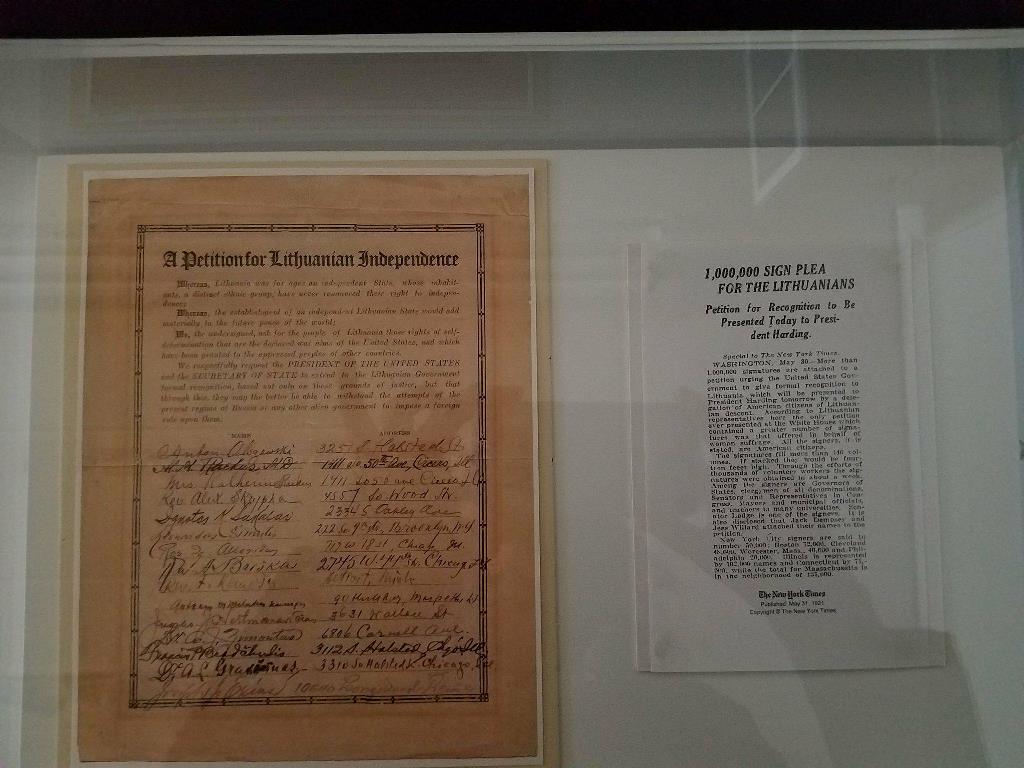 A Petition for Lithuanian Independence
Whereas, Lithuania was for ages an independent State, whose inhabit-
ants, a distinct ethnic group, have never renounced their right to indepen-
dence;
Whereas, the establishment of an independent Lithuanian State would add
materially to the future peace of the world;
We, the undersigned, ask for the people of Lithuania those rights of self-
determination that are the declared war aims of the United States, and which
have been granted to the oppressed peoples of other countries.
We respectfully request the PRESIDENT OF THE UNITED STATES
and the SECRETARY OF STATE to extend to the Lithuanian Government
formal recognition, based not only on these grounds of justice, but that
through this, they may the better be able to withstand the attempts of the
present regime of Russia or any other alien government to impose a foreign
rule upon them.
NAME ADDRESS
Anton 3251 S. Halsted St
1411 so. 50th Ave, Cicero, Ill
Mrs. Katherine 1411 so 50 ave Cicero
Rev. Alex. Skrypka 4557 So. Wood St.
Ignotas K. Sakalas 2334 S Oakley Ave
222 So 9th St, Brooklyn, N.Y
717 W 18 st Chicago Ill.
2745 W. 14th St. Chicago Ill
Detroit, Mich
3631 Wallace St
6806 Carnell Ave.
3112 S. Halsted, Chgo Ill.
Dr A. L. Graiczunas 3310 So Halsted St. Chicago, Ill
1,000,000 SIGN PLEA
FOR THE LITHUANIANS
Petition for Recognition to Be
Presented Today to Presi-
dent Harding.
Special to The New York Times.
WASHINGTON, May 30.—More than
1,000,000 signatures are attached to a
petition urging the United States Gov-
ernment to give formal recognition to
Lithuania which will be presented to
President Harding tomorrow by a dele-
gation of American citizens of Lithuan-
ian descent. According to Lithuanian
representatives here the only petition
ever presented at the White House which
contained a greater number of signa-
tures was that offered in behalf of
woman suffrage. All the signers, it is
stated, are American citizens.
The signatures fill more than 140 vol-
umes. If stacked they would be four-
teen feet high. Through the efforts of
thousands of volunteer workers the sig-
natures were obtained in about a week.
Among the signers are Governors of
States, clergymen of all denominations,
Senators and Representatives in Con-
gress, Mayors and municipal officials,
and teachers in many universities. Sen-
ator Lodge is one of the signers. It is
also disclosed that Jack Dempsey and
Jess Willard attached their names to the
petition.
New York City signers are said to
number 50,000; Boston 72,000, Cleveland
Worcester, Mass., 40,000 and Phil-
adelphia 20,000. Illinois is represented
by 162,000 names and Connecticut by
while the total for Massachusetts is
in the neighborhood of
The New York Times
Published: May 31, 1921
Copyright © The New York Times